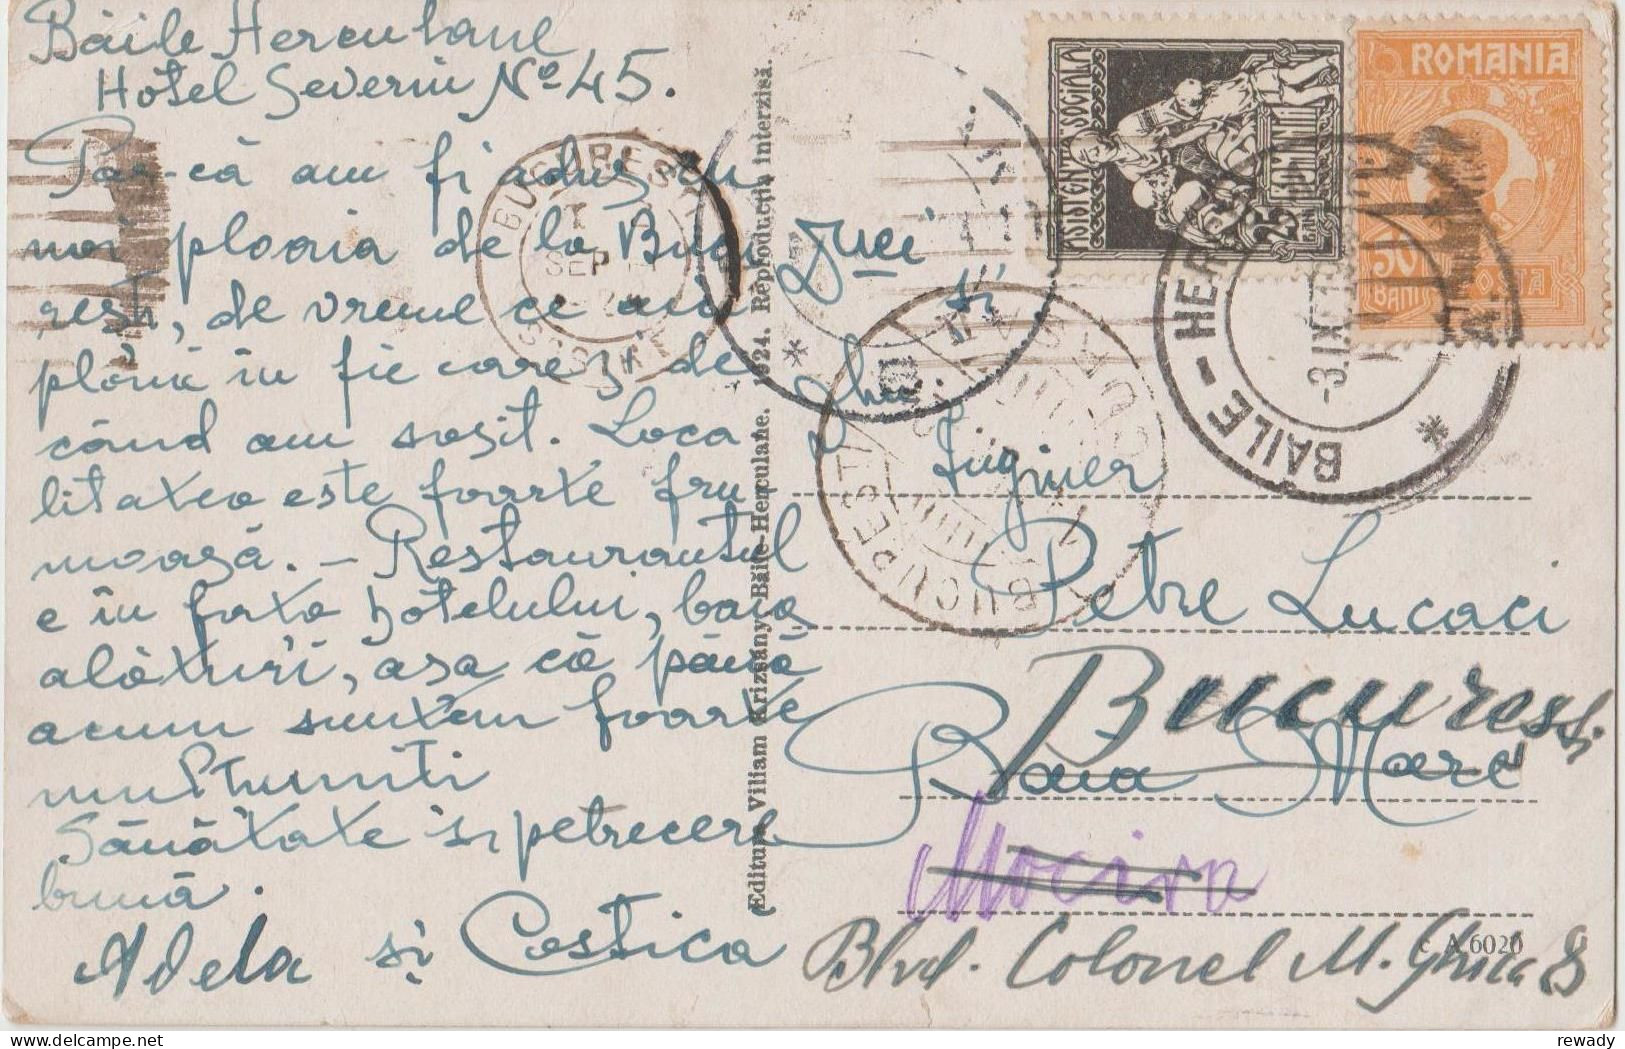 Băile Herculane
Hotel Severin No 45.
Par-că am fi adus cu
noi ploaia de la Bucu
rești, de vreme ce au
plouă în fie care zi de
când am sosit. Loca
litatea este foarte fru-
moasă. - Restaurantul
e în fața hotelului, baia
alături, așa că până
acum suntem foarte
mulțumiți
Sănătate și petrecere
bună.
Adela și Costica
Editura Viliam Krizsány Băile-Herculane. 1924. Reproducția interzisă.
ASISTENTA SOCIALA
ROMANIA
25
BANI
ROMANIA
50
BANI
POSTA
BAILE - HERCULANE
-3.IX
BUCURESTI
SEP
BUCURESTI
și
Inginer
Petre Lucaci
București
Baia Mare
Mocira
Blvd. Colonel M. Ghica 8
c. A 6020
rewady